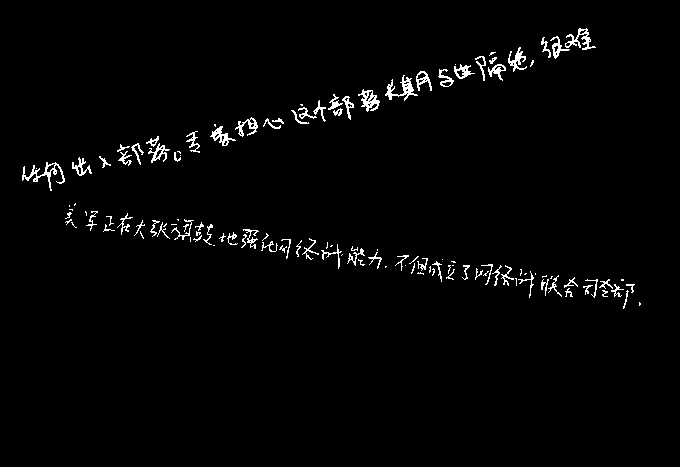 任何出入部落。专家担心这个部落长期与世隔绝,很难
美军正在大张旗鼓地强化网络战能力.不但成立了网络战联合司令部.